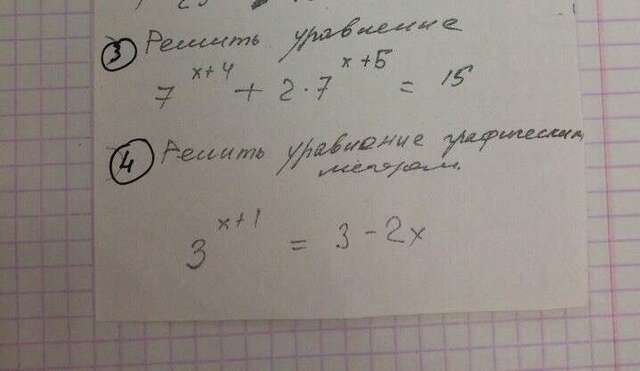 ③ Решить уравнение
7^{x+4} + 2·7^{x+5} = 15
④ Решить уравнение графическим
методом.
3^{x+1} = 3 - 2x